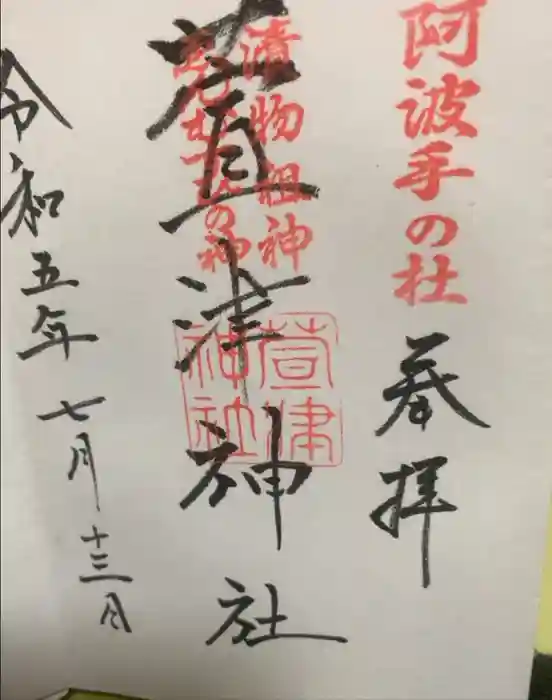 阿波手の杜
奉拝
漬物祖神
縁むすびの神
萱津神社
萱津神社
令和五年
七月十三日